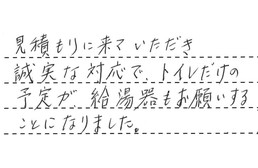 見積もりに来ていただき
誠実な対応で、トイレだけの
予定が、給湯器もお願いする
ことになりました。